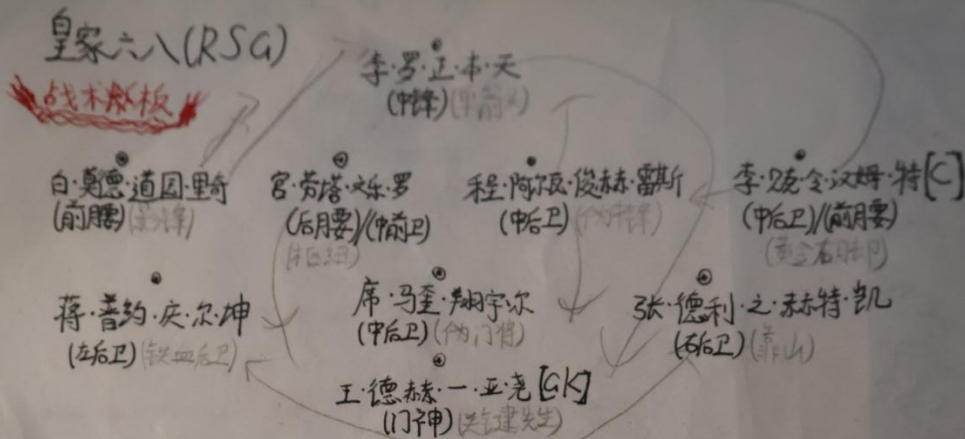 皇家六八(RSG)
战术板
李·罗·正·本·天
(中锋)
白·莫德·道因·里奇
(前腰)
宫·劳塔·文乐·罗
(后腰)/(中前卫)
程·阿尔瓦·俊赫·雷斯
(中后卫)(伪中锋)
李·克·令·汉姆·特[C]
(中后卫)/(前腰)
(黄金右脚)
蒋·普约·庆·尔·坤
(左后卫)(铁血后卫)
席·马奎·翔宇·尔
(中后卫)(伪门将)
张·德利·之·赫特·凯
(右后卫)(靠山)
王·德赫·一·亚·尧[GK]
(门神)(关键先生)